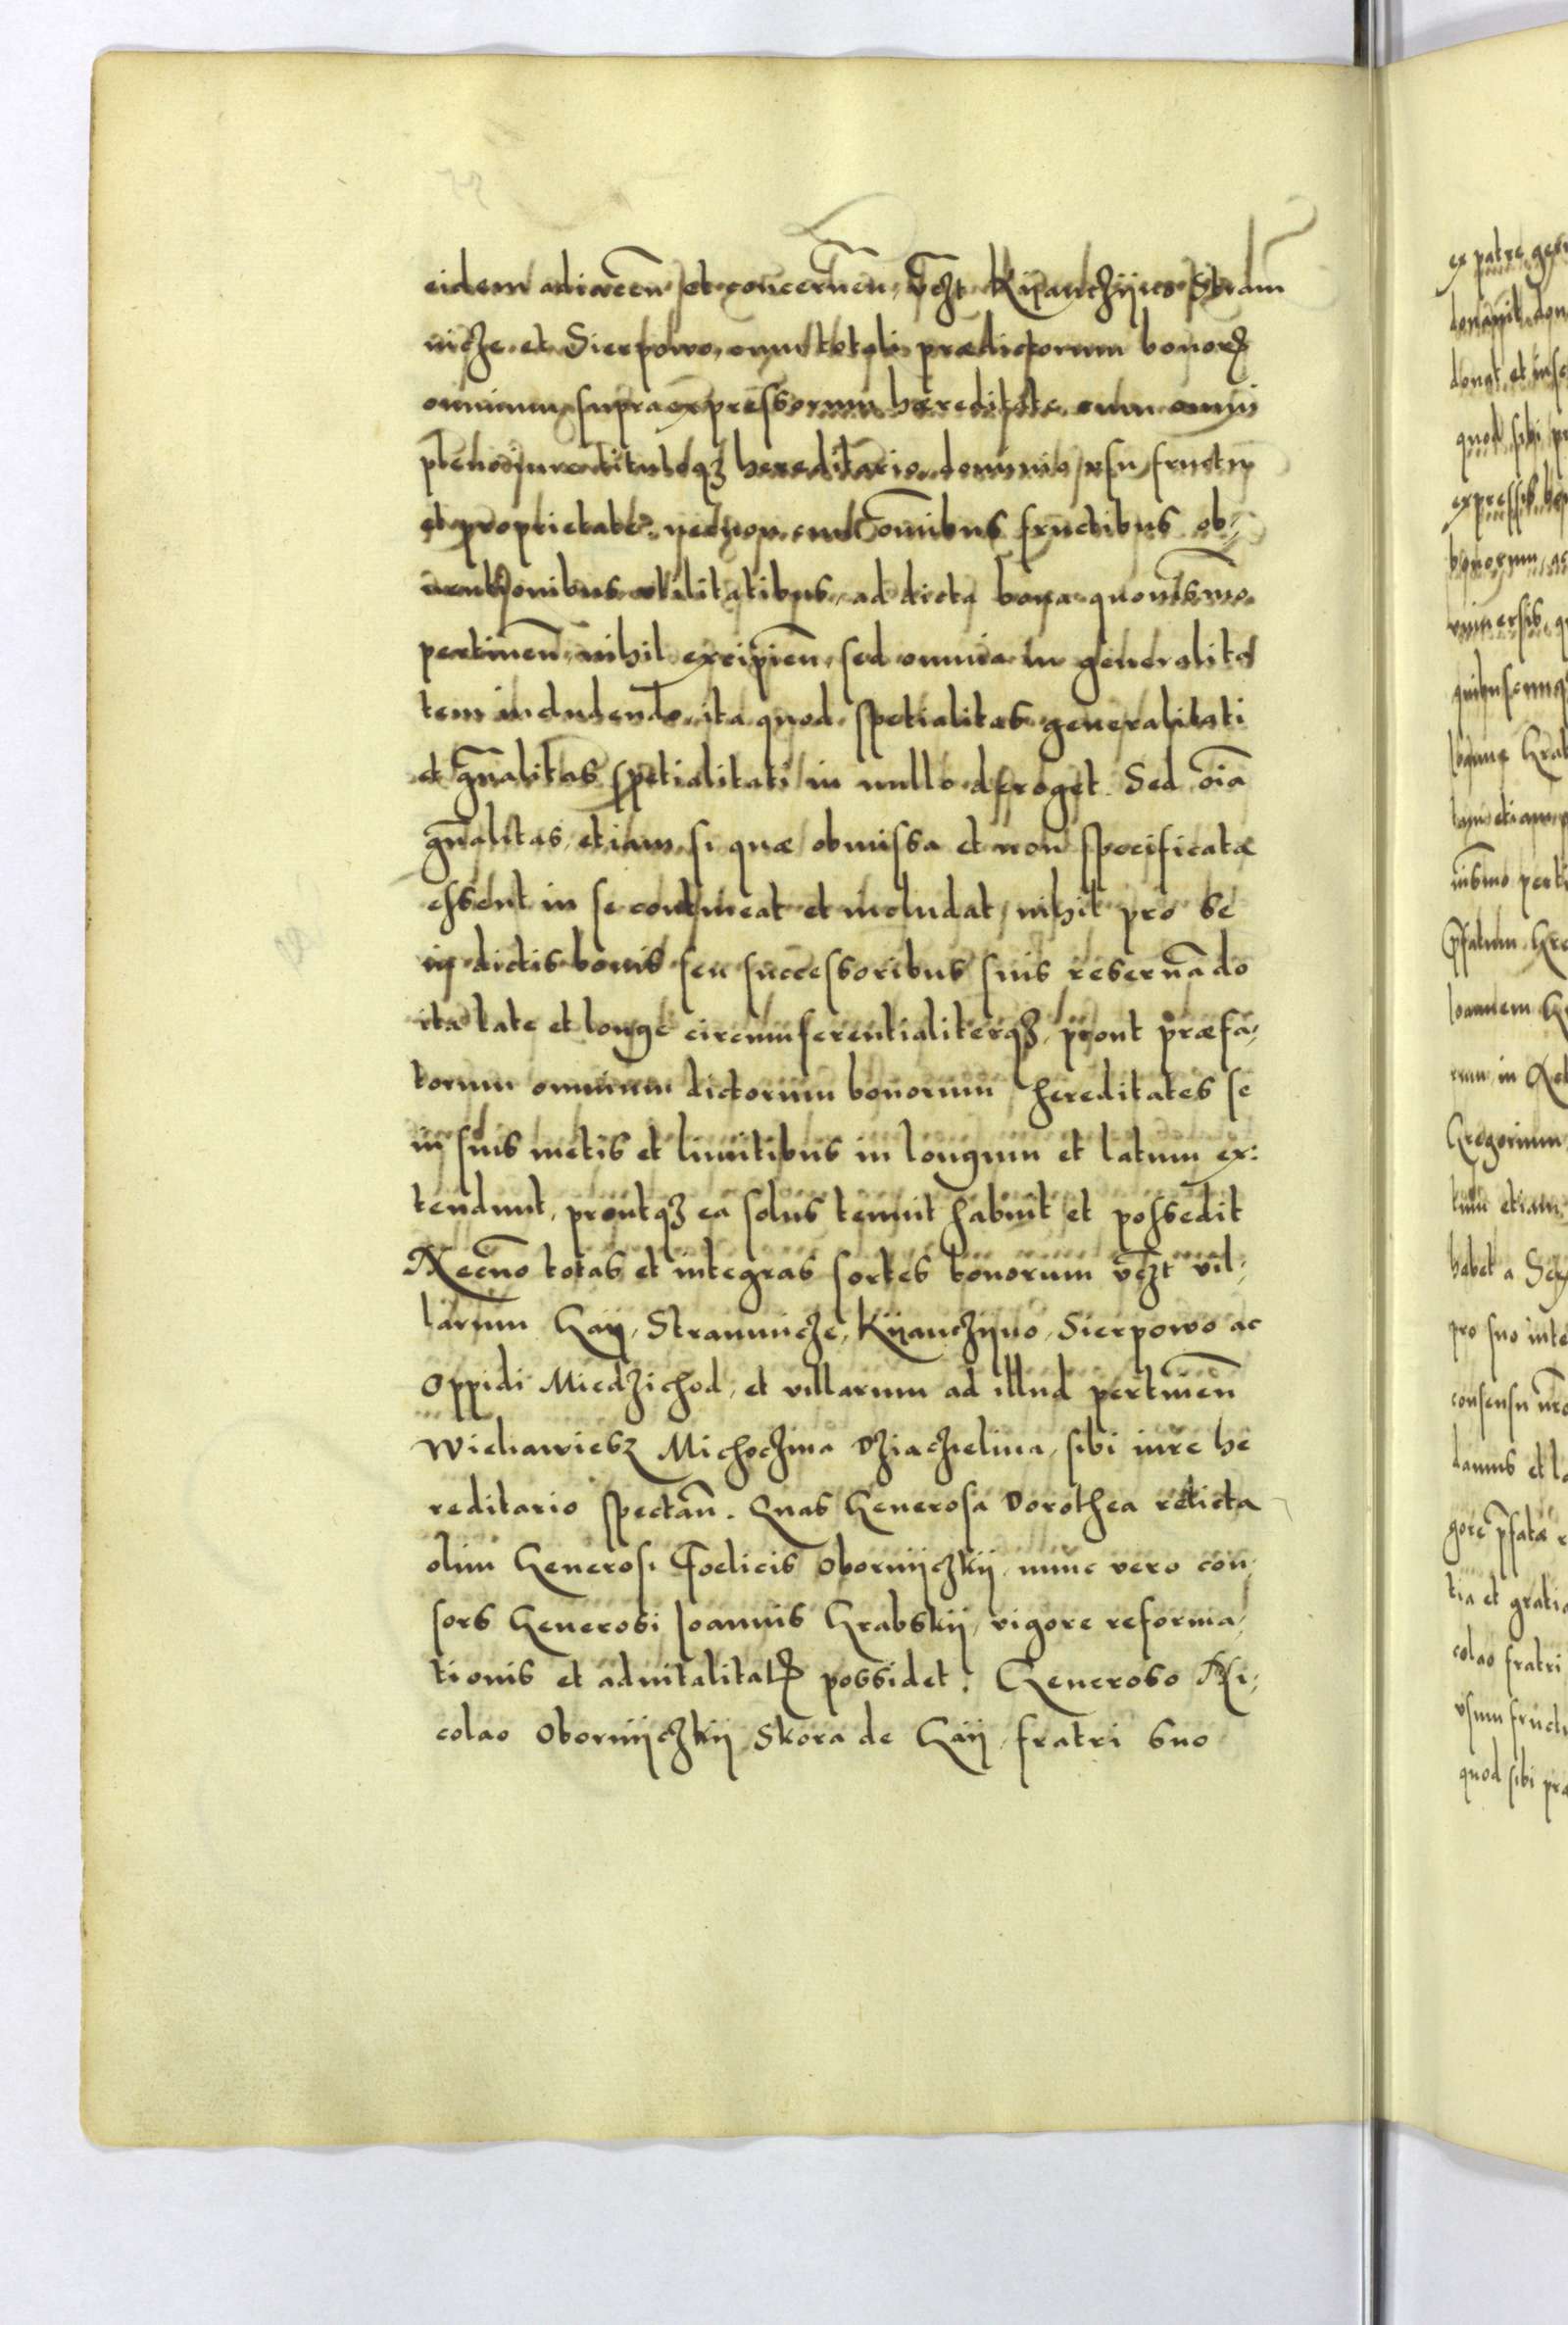 eidem adiaceñ et concerneñ, vc̃zt Kÿanczÿno Stram
nicze et Sierpowo, cum totali prædictorum bonorꝝ
omnium supraexpressorum hæreditate cum omni
pleno iure tituloqꝫ hereditario dominio usu fructu
et proprietate. necnon cum om̃ibus fructibus ob-
ventionibus utilitatibus, ad dicta bona quouismõ
pertineñ, nihil excipieñ, sed omnia in generalita
tem includendo, ita quod spetialitas generalitati
et gñalitas spetialitati in nullo deroget. Sed oĩa
gñalitas, etiam si quæ obmissa et non specificata
essent in se contineat et includat, nihil pro se
in dictis bonis seu successoribus suis reseruãdo
ita late et longe circumferentialiterqꝫ, prout præfa-
torum omnium dictorum bonorum hereditates se
in suis metis et limitibus in longum et latum ex:
tendunt, proutqꝫ ea solus tenuit habuit et possedit
Necnõ totas et integras sortes bonorum vc̃zt vil-
larum Gaÿ, Stramnicze, Kÿanczÿno, Sierpowo ac
Oppidi Miedzichod, et villarum ad illud pertineñ
Wielawiesz Michoczina Dziaczielina, sibi iure he
reditario spectañ. Quas Generosa Dorothea relicta
olim Generosi Foelicis Obornÿczkÿ, nunc vero con-
sors Generosi Joannis Grabskÿ, vigore reforma-
tionis et aduitalitatꝭ possidet. Generoso Ni-
colao Obornÿczkÿ Skora de Gaÿ, fratri suo
ex patre
donat et
quod sibi
bonorum, ac
tam etiam
loannem
Gregorium
etiam
habet a
pro suo
colao fratri
quod sibi